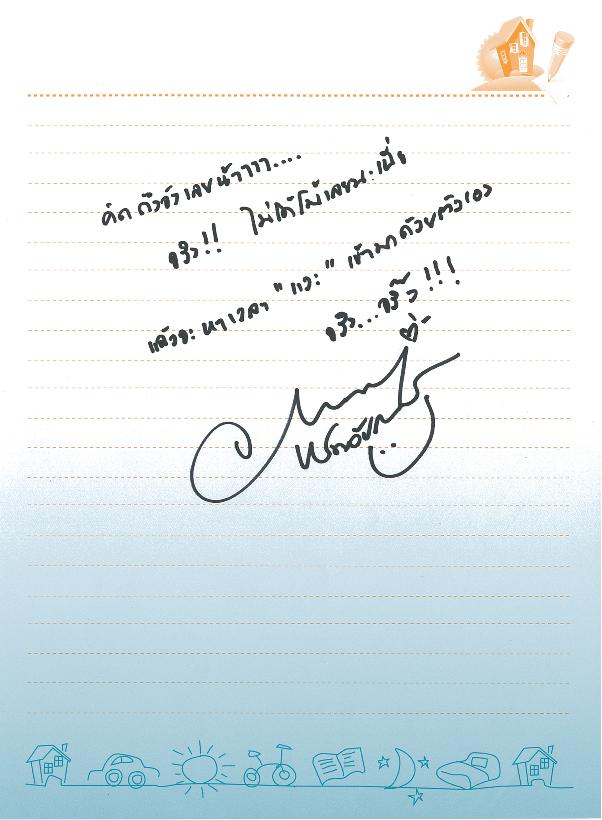 คิด ถึงจังเลยน้าาาา....
จริง!! ไม่ได้โม้เลยนะเนี่ย
แล้วจะ หาเวลา "แวะ" เข้ามาด้วยตัวเอง
จริง...จริ๊ง!!!